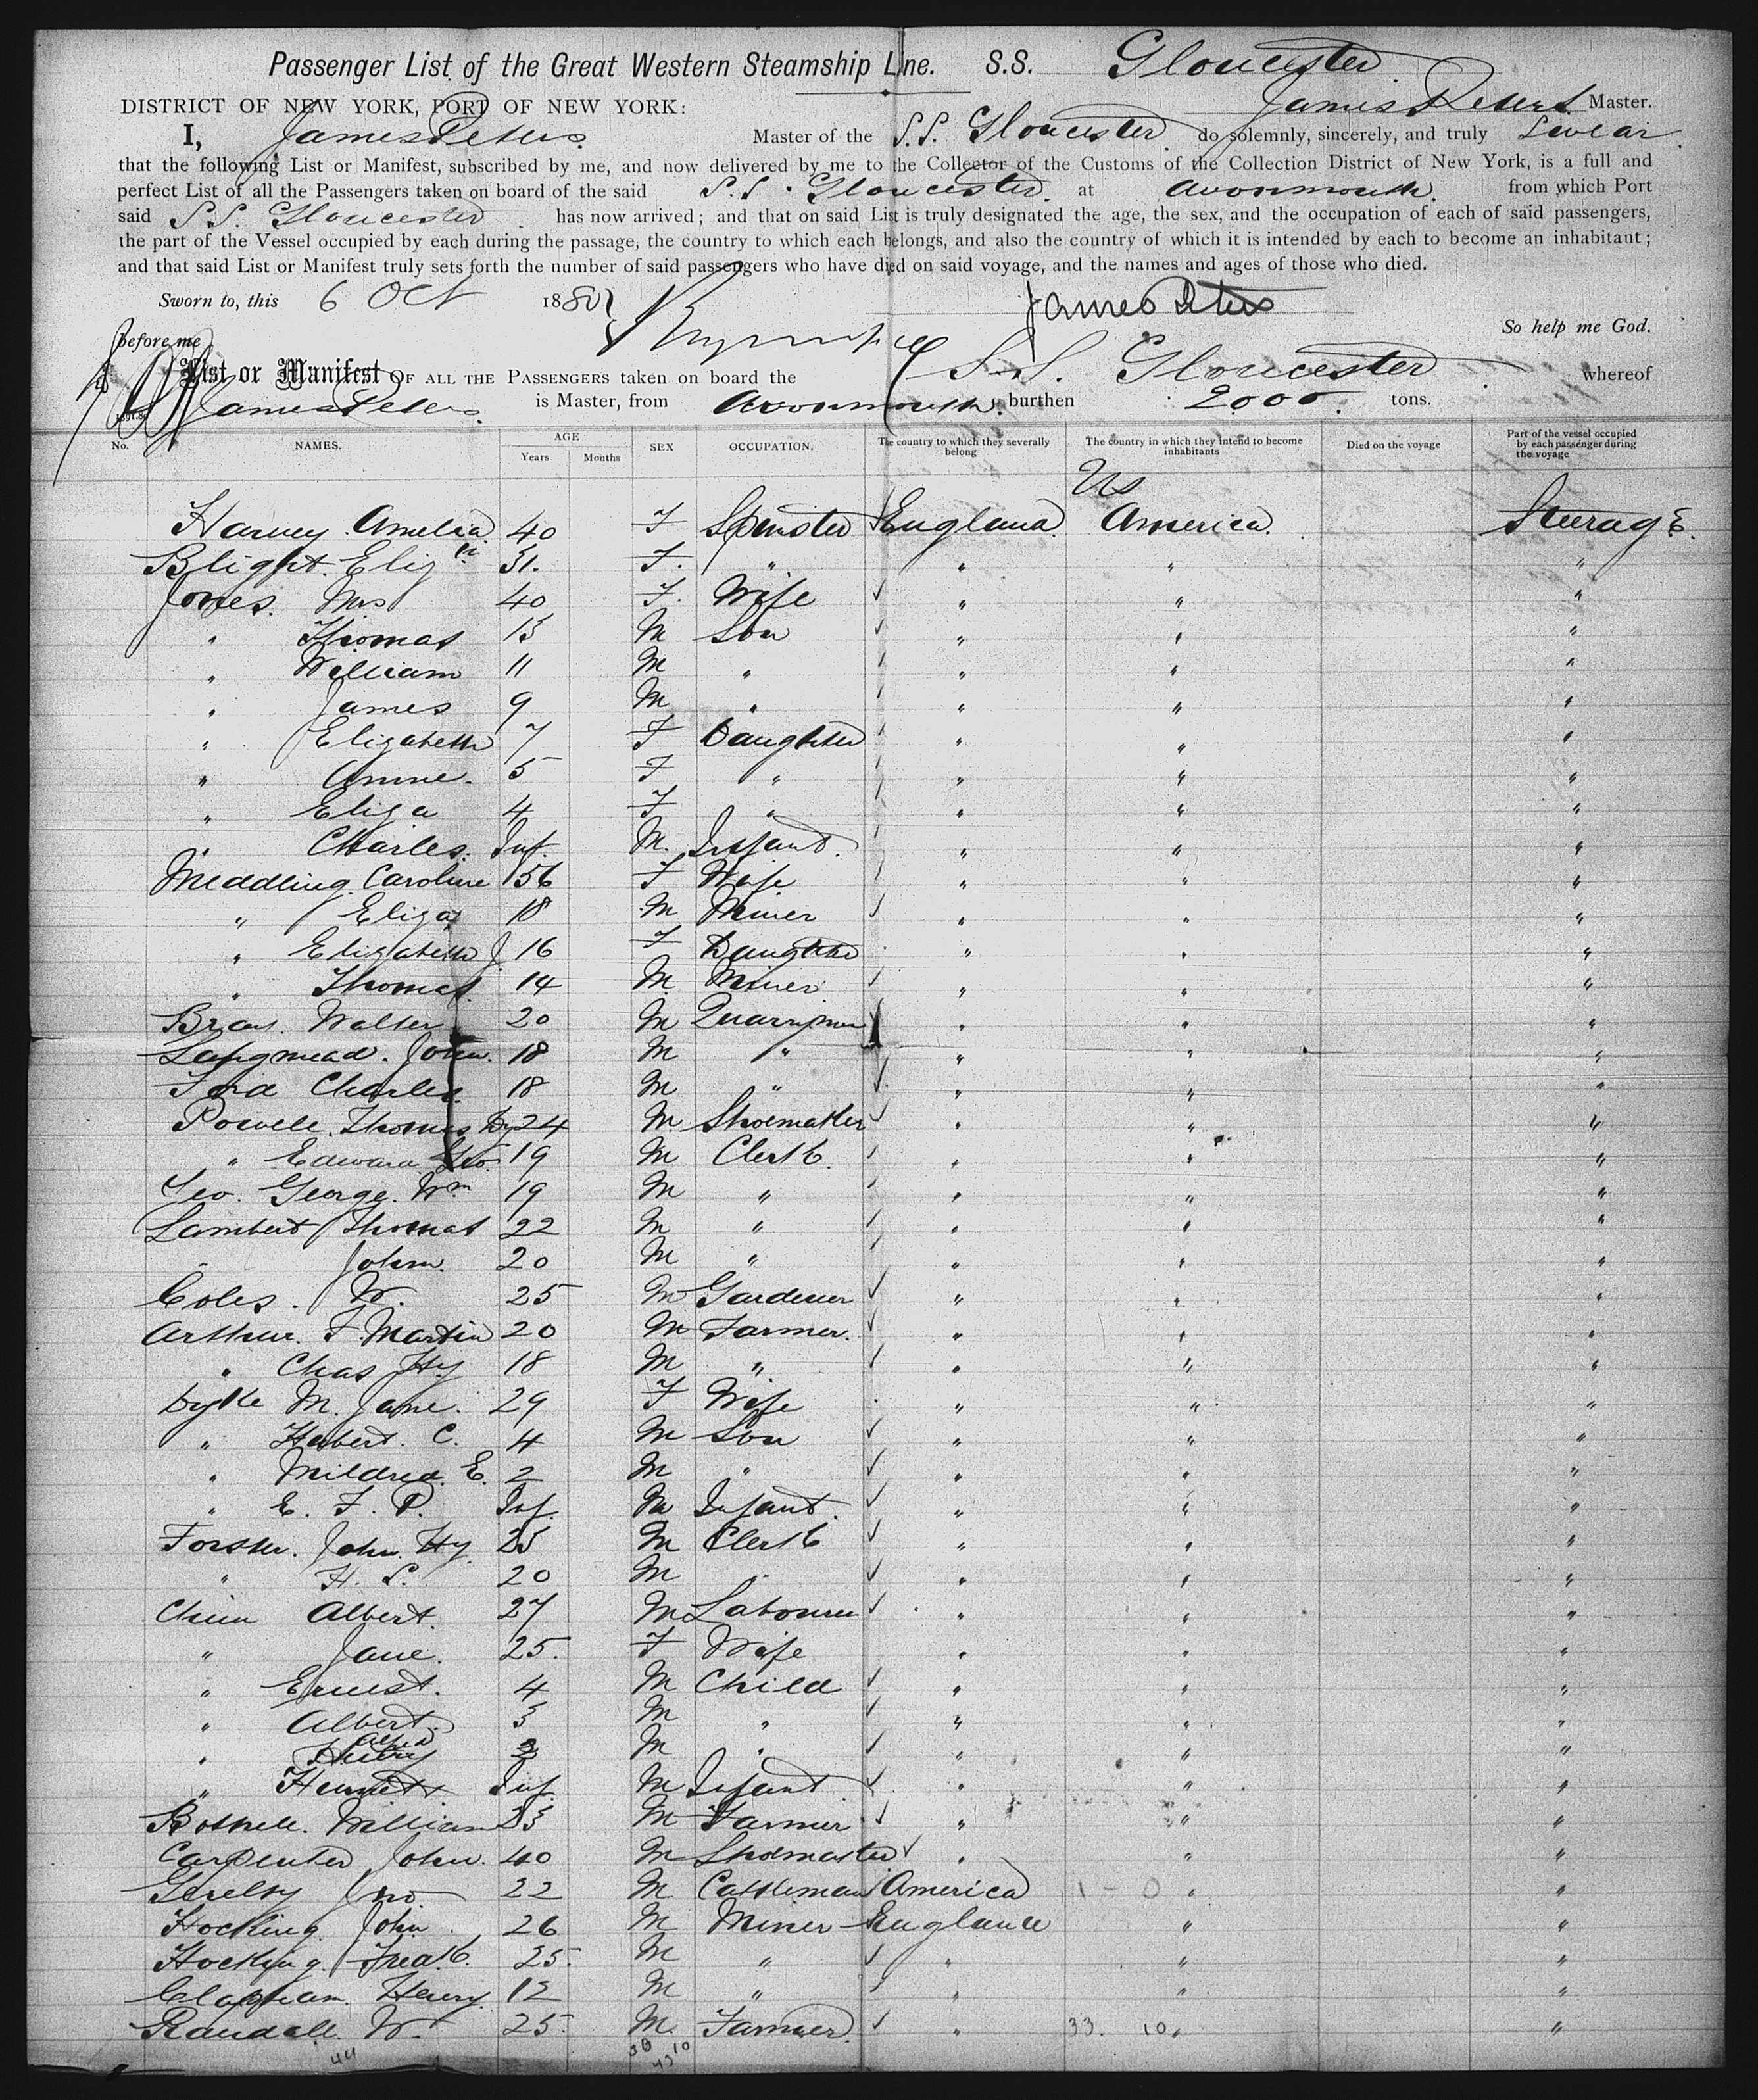 Passenger List of the Great Western Steamship Line. S.S. Gloucester
DISTRICT OF NEW YORK, PORT OF NEW YORK: James Peters Master.
I, James Peters Master of the S.S. Gloucester do solemnly, sincerely, and truly swear
that the following List or Manifest, subscribed by me, and now delivered by me to the Collector of the Customs of the Collection District of New York, is a full and
perfect List of all the Passengers taken on board of the said S.S. Gloucester at Avonmouth. from which Port
said S.S. Gloucester has now arrived; and that on said List is truly designated the age, the sex, and the occupation of each of said passengers,
the part of the Vessel occupied by each during the passage, the country to which each belongs, and also the country of which it is intended by each to become an inhabitant;
and that said List or Manifest truly sets forth the number of said passengers who have died on said voyage, and the names and ages of those who died.
Sworn to, this 6 Oct 188 James Peters
before me So help me God.
List or Manifest OF ALL THE PASSENGERS taken on board the S.S. Gloucester whereof
James Peters is Master, from Avonmouth. burthen 2000. tons.
No. NAMES. AGE Years Months SEX OCCUPATION. The country to which they severally belong The country in which they intend to become inhabitants Died on the voyage Part of the vessel occupied by each passenger during the voyage
US
Harvey Amelia 40 F Spinster England America. Steerage.
Blight. Eliz th 31. F. " " " "
Jones. Mrs 40 F. Wife " " "
" Thomas 13 M Son " " "
" William 11 M " " " "
" James 9 M " " " "
" Elizabeth 7 F Daughter " " "
" Annie. 5 F " " " "
" Eliza 4 F " " " "
" Charles. Inf. M. Infant. " " "
Meddling Caroline 56 F Wife " " "
" Eliza 18 M Miner " " "
" Elizabeth J 16 F Daughter " " "
" Thomas 14 M. Miner " " "
Bray. Walter 20 M Quarryman " " "
Langmead. John. 18 M " " " "
Ford Charles. 18 M " " " "
Powell. Thomas Hy 24 M Shoemaker " " "
" Edward Geo. 19 M Clerk. " " "
Yeo. George. Wm 19 M " " " "
Lambert Thomas 22 M " " " "
" John. 20 M " " " "
Coles. W. 25 M Gardener " " "
Arthur. F. Martin 20 M Farmer. " " "
" Chas Hy 18 M " " " "
Dyke M. Jane. 29 F Wife " " "
" Herbert. C. 4 M Son " " "
" Mildred. E. 2 M " " " "
" E. F. P. Inf. M Infant. " " "
Forster. John. Hy. 25 M Clerk " " "
" H. S. 20 M " " " "
Albert. 27 M Labourer " " "
" Jane. 25. F Wife " " "
" Ernest. 4 M Child " " "
" Albert. 3 M " " " "
" Alfred M " " " "
" Inf. M Infant " " "
William 23 M Farmer " " "
Carpenter John. 40 M Shoemaker " " "
Jno 22 M Cattleman America 1 - 0 " "
Hocking. John. 26 M Miner England " "
Hocking. Fredk. 25. M " " " "
Clapham. Henry. 12 M " " " "
Randall. W. 25. M. Farmer. " 33. 10 " "
44